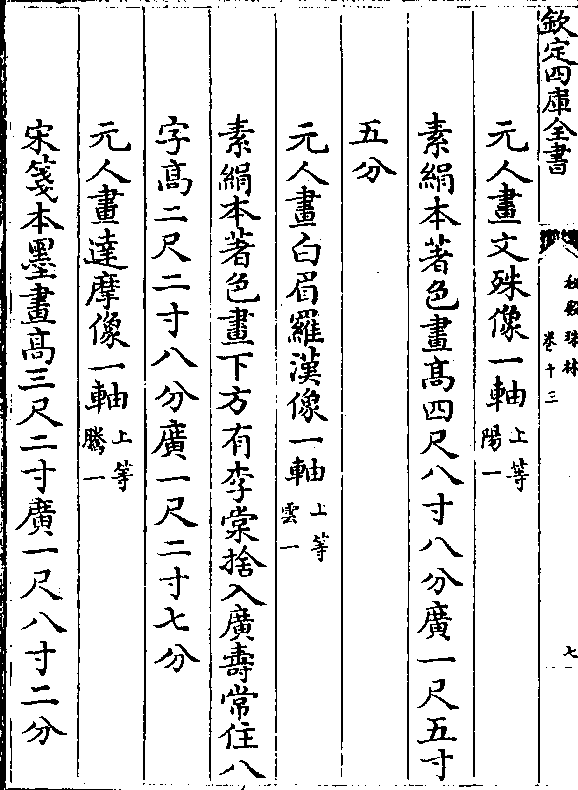 欽定四庫全書
秘殿珠林
卷十三
七
元人畫文殊像一軸上等陽一
素絹本著色畫高四尺八寸八分廣一尺五寸
五分
元人畫白眉羅漢像一軸上等雲一
素絹本著色畫下方有李棠捨入廣壽常住八
字高二尺二寸八分廣一尺二寸七分
元人畫達摩像一軸上等騰一
宋箋本墨畫高三尺二寸廣一尺八寸二分